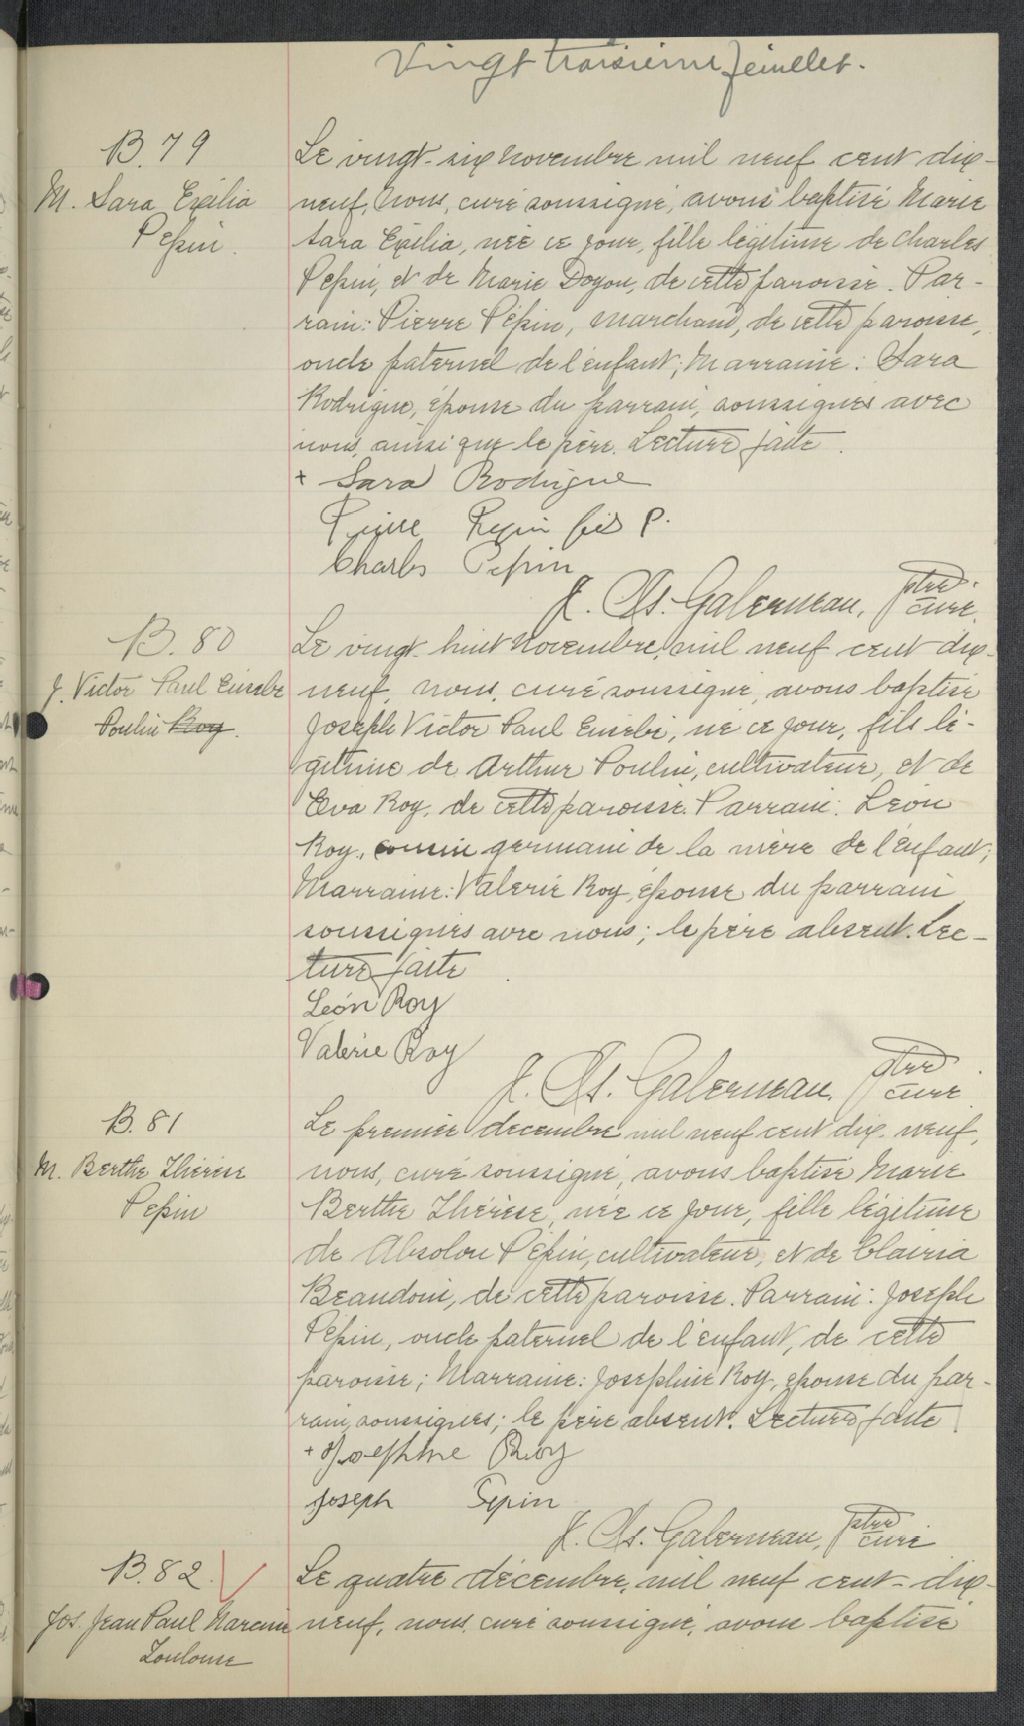 Vingt troisième feuillet.
B. 79
M. Sara Exilia
Pepin.
Le vingt-six novembre mil neuf cent dix-
neuf, nous, curé soussigné, avons baptisé Marie
Sara Exilia, née ce jour, fille légitime de Charles
Pepin, et de Marie Doyon, de cette paroisse. Par-
rain: Pierre Pépin, marchand, de cette paroisse,
oncle paternel de l'enfant; Marraine: Sara
Rodrigue, épouse du parrain, soussignés avec
nous, ainsi que le père. Lecture faite.
+ Sara Rodrigue
Pierre Pepin fils P.
Charles Pepin
J. Ch. Galerneau, ptre
curé.
B. 80
J. Victor Paul Eusebe
Poulin Roy.
Le vingt-huit novembre, mil neuf cent dix-
neuf, nous, curé soussigné, avons baptisé
Joseph Victor Paul Eusebe, né ce jour, fils lé-
gitime de Arthur Poulin, cultivateur, et de
Eva Roy, de cette paroisse. Parrain: Léon
Roy, cousin germain de la mère de l'enfant;
Marraine: Valérie Roy, épouse du parrain
soussignés avec nous; le père absent. Lec-
ture faite
Léon Roy
Valérie Roy
J. Ch. Galerneau, ptre
curé
B. 81
M. Berthe Thérèse
Pepin
Le premier décembre mil neuf cent dix-neuf,
nous, curé soussigné, avons baptisé Marie
Berthe Thérèse, née ce jour, fille légitime
de Absolon Pépin, cultivateur, et de Clairia
Beaudoin, de cette paroisse. Parrain: Joseph
Pépin, oncle paternel de l'enfant, de cette
paroisse; Marraine: Josephine Roy, épouse du par-
rain, soussignés; le père absent. Lecture faite
+ Josephine Roy
Joseph Pepin
J. Ch. Galerneau, ptre
curé
B. 82.
Jos. Jean Paul Narcisse
Toulouse
Le quatre décembre, mil neuf cent-dix-
neuf, nous, curé soussigné, avons baptisé